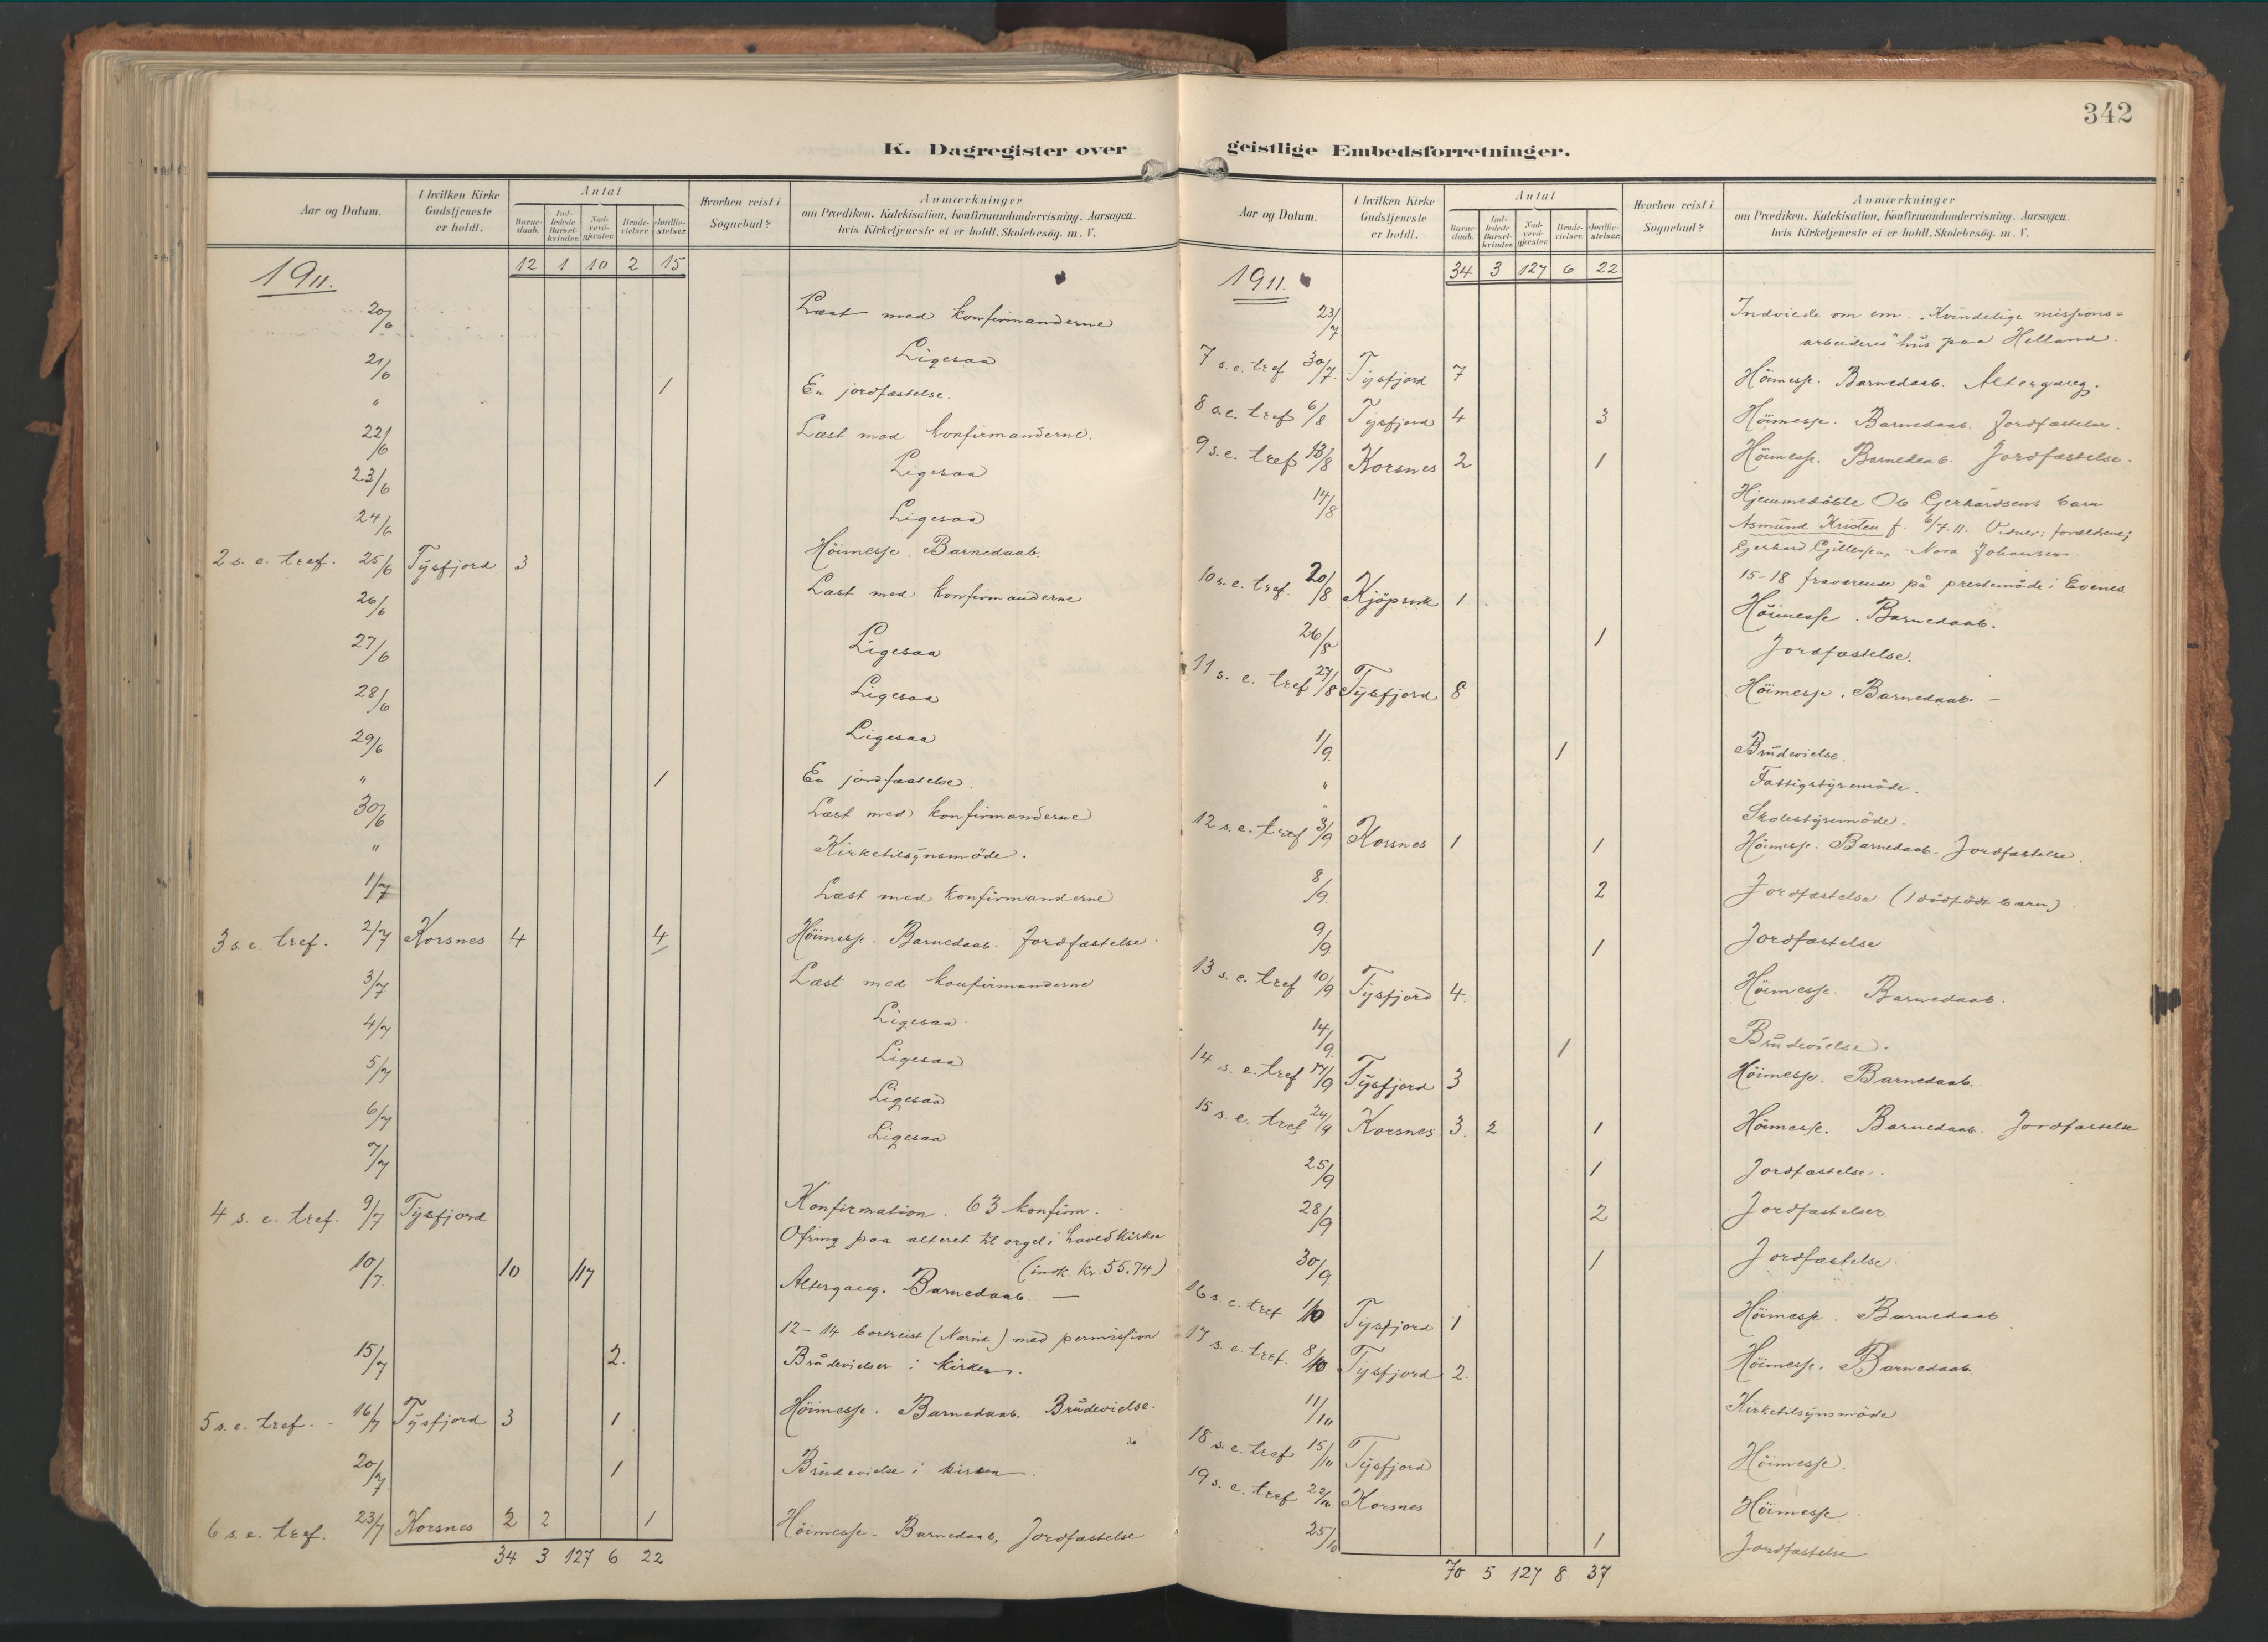 342
K. Dagregister over geistlige Embedsforretninger.
Aar og Datum. I hvilken Kirke Gudstjeneste er holdt. Antal Barnedaab. Indledede Barselkvinder. Nadverdgjæster. Brudevielser. Jordfæstelser. Hvorhen reist i Sognebud? Anmærkninger
om Prædiken, Katekisation, Konfirmandundervisning, Aarsagen,
hvis Kirketjeneste ei er holdt, Skolebesög. m. V.
1911. 12 1 10 2 15
20/6 Læst med konfirmanderne
21/6 Ligesaa
" 1 En jordfæstelse.
22/6 Læst med konfirmanderne.
23/6 Ligesaa
24/6 Ligesaa
2 s. e. tref. 25/6 Tysfjord 3 Höimesse. Barnedaab.
26/6 Læst med konfirmanderne
27/6 Ligesaa
28/6 Ligesaa
29/6 Ligesaa
" 1 En jordfæstelse.
30/6 Læst med konfirmanderne
" Kirketilsynsmöde.
1/7 Læst med konfirmanderne
3 s. e. tref. 2/7 Korsnes 4 4 Höimesse. Barnedaab. Jordfæstelse.
3/7 Læst med konfirmanderne
4/7 Ligesaa
5/7 Ligesaa
6/7 Ligesaa
7/7 Ligesaa
4 s. e. tref. 9/7 Tysfjord Konfirmation. 63 konfirm.
Ofring paa alteret til orgel i hovedkirken
(indk. kr. 55.74)
10/7. 10 117 Altergang. Barnedaab. —
12-14 bortreist (Narvik) med permission
15/7 2. Brudevielser i kirken.
5 s. e. tref. - 16/7 Tysfjord 3 1 Höimesse. Barnedaab. Brudevielse.
20/7 1 Brudevielse i kirken.
6 s. e. tref. 23/7 Korsnes 2 2 1 Höimesse - Barnedaab, Jordfæstelse
34 3 127 6 22
Aar og Datum. I hvilken Kirke Gudstjeneste er holdt. Antal Barnedaab. Indledede Barselkvinder. Nadverdgjæster. Brudevielser. Jordfæstelser. Hvorhen reist i Sognebud? Anmærkninger
om Prædiken, Katekisation, Konfirmandundervisning, Aarsagen,
hvis Kirketjeneste ei er holdt, Skolebesög. m. V.
1911. 34 3 127 6 22
23/7 Indviede om em. "Kvindelige missions=
arbeideres" hus paa Helland.
7 s. e. tref 30/7. Tysfjord 7 Höimesse. Barnedaab. Altergang.
8 s. e. tref 6/8 Tysfjord 4 3 Höimesse. Barnedaab. Jordfæstelse.
9 s. e. tref 13/8 Korsnes 2 1 Höimesse. Barnedaab. Jordfæstelse.
14/8 Hjemmedöbte Ole Gerhardsens barn
Asmund Kristen f. 6/7.11. Vidner: forældrene;
Gerhard, Nora Johansen.
15-18 fraværende på prestemöde i Evenes
10 s. e. tref. 20/8 Kjöpsvik 1 Höimesse. Barnedaab.
26/8 1 Jordfæstelse.
11 s. e. tref 27/8 Tysfjord 8 Höimesse. Barnedaab. —
1/9. 1 Brudevielse.
" Fattigstyremöde.
" Skolestyremöde.
12 s. e. tref 3/9 Korsnes 1 1 Höimesse. Barnedaab. Jordfæstelse.
8/9. 2 Jordfæstelse (1 dödfödt barn).
9/9. 1 Jordfæstelse
13 s. e. tref 10/9 Tysfjord 4. Höimesse. Barnedaab.
14/9. 1 Brudevielse.
14 s. e. tref 17/9 Tysfjord 3 Höimesse. Barnedaab.
15 s. e. tref 24/9 Korsnes 3. 2 1 Höimesse. Barnedaab. Jordfæstelse
25/9 1 Jordfæstelse.
28/9 2 Jordfæstelser.
30/9. 1 Jordfæstelse.
16 s. e. tref 1/10 Tysfjord 1 Höimesse. Barnedaab
17 s. e. tref. 8/10 Tysfjord 2. Höimesse. Barnedaab.
11/10 Kirketilsynsmöde
18 s. e. tref 15/10 Tysfjord Höimesse.
19 s. e. tref 22/10 Korsnes Höimesse.
25/10 1 Jordfæstelse
70 5 127 8 37